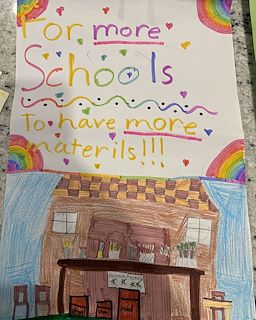 For more
Schools
To have more
materils!!!